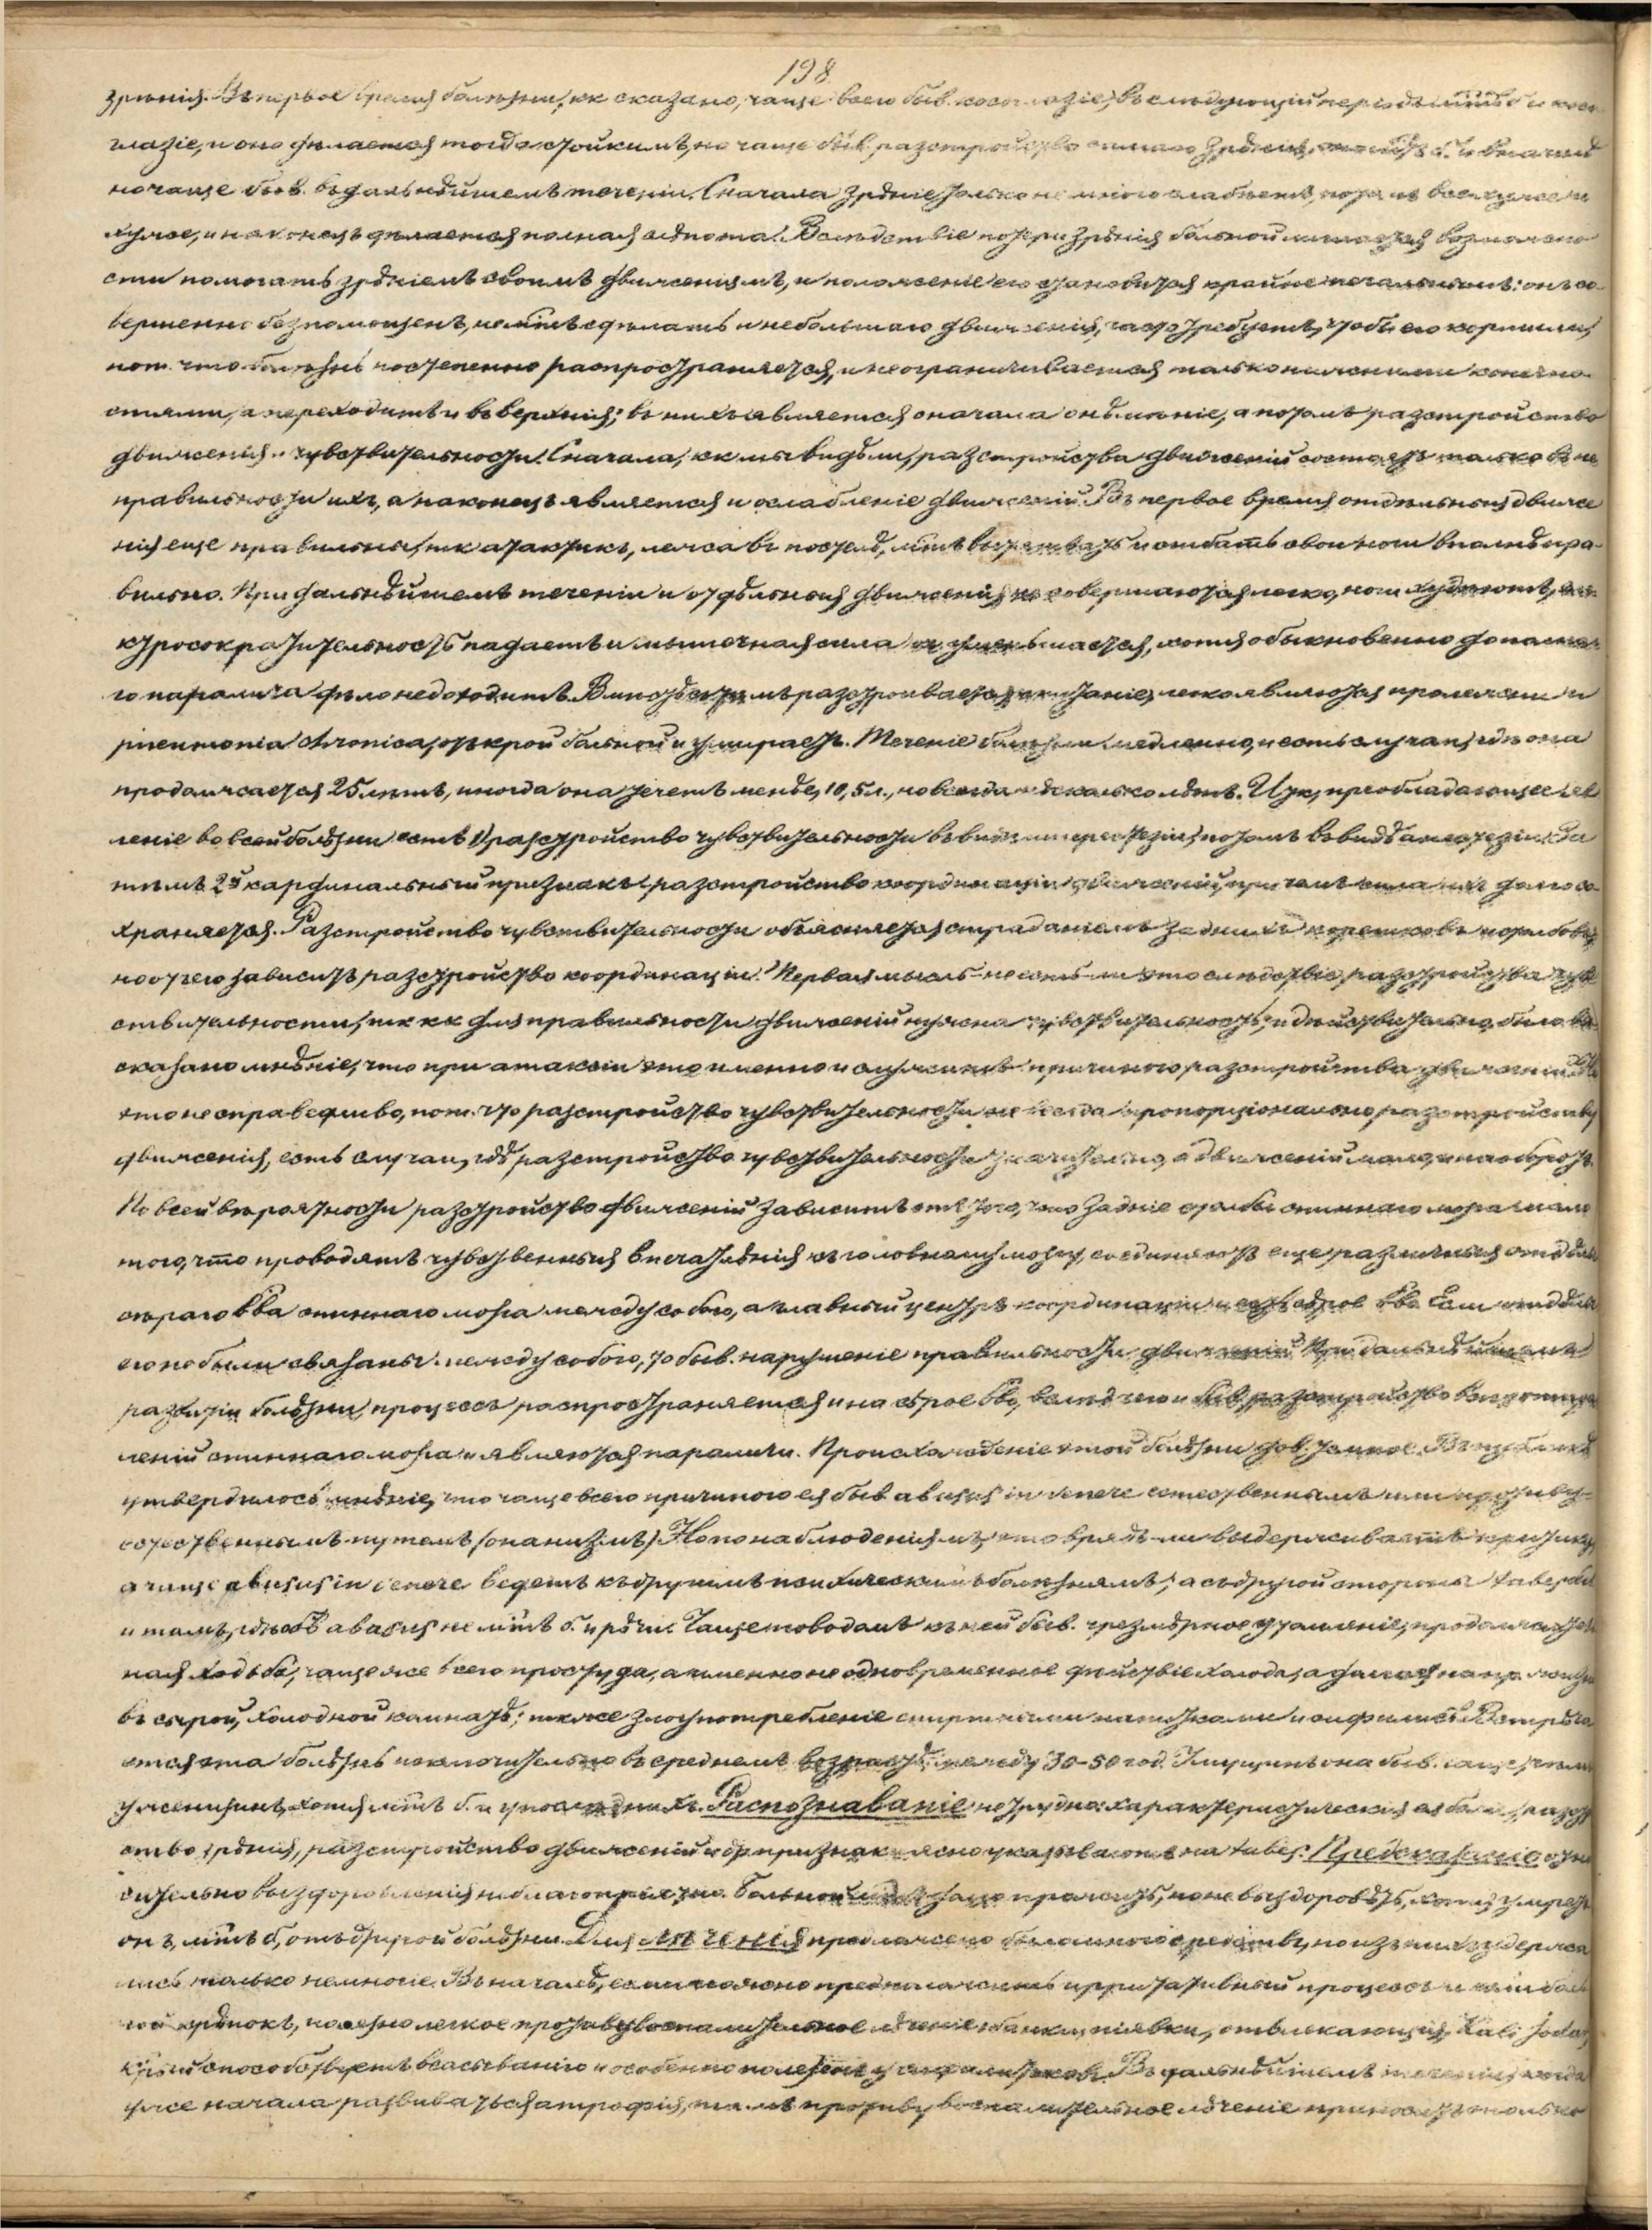 198
зрѣнія. Въ первое время болѣзни, кк сказано, чаще всего быв. косоглазіе, въ слѣдующій періодъ
глазіе, и оно дѣлается тогда стойкимъ, но чаще быв. разстройство самаго зрѣнія,
но чаще быв. въ дальнѣйшемъ теченіи. Сначала зрѣніе только немного слабѣетъ, потомъ все хуже и
хуже, и наконецъ дѣлается полная слѣпота. Вслѣдствіе потери зрѣнія больной лишается возможно
сти помогать зрѣніемъ своимъ движеніямъ, и положеніе его становится крайне печальнымъ: онъ со-
вершенно безпомощенъ, не мжтъ сдѣлать и небольшаго движенія, часто требуетъ, чтобы его кормили,
пот. что болѣзнь постепенно распространяется, и не ограничивается только нижними конечно-
стями, а переходитъ и въ верхнія; въ нихъ является сначала онѣмѣніе, а потомъ разстройство
движенія и чувствительности. Сначала, кк мы видѣли, разстройства движеній состоятъ только въ не
правильности ихъ, а наконецъ является и ослабленіе движеній. Въ первое время отдѣльныя движе
нія еще правильны, тк атактикъ, лежа въ постели, мжтъ вытягивать и сгибать свои ноги вполнѣ пра-
вильно. При дальнѣйшемъ теченіи и отдѣльныя движенія не совершаются легко, ноги худѣютъ,
ктросократительность падаетъ и мышечная сила их уменьшается, хотя обыкновенно до полна
го паралича дѣло не доходитъ. Впослѣдствіи разстроивается питаніе, легко являются пролежни и
pneumonia chronica, отъ крой больной и умираетъ. Теченіе болѣзни медленно, и есть случаи, гдѣ она
продолжается 25 лѣтъ, иногда она течетъ менѣе, 10, 5 л., но всегда нѣсколько лѣтъ. Итак, преобладающее яв
леніе во всей болѣзни есть 1) разстройство чувствительности въ видѣ гиперестезіи, потомъ въ видѣ анестезіи. За
тѣмъ 2й кардинальный признакъ разстройство координаціи движеній, при чемъ сила их долго со-
храняется. Разстройство чувствительности объясняется страданіемъ заднихъ корешковъ и столбовъ,
но отчего зависитъ разстройство координаціи? Первая мысль не есть ли это слѣдствіе разстройства чув
ствительности, тк кк для правильности движеній нужна чувствительность, и дѣйствительно было вы
сказано мнѣніе, что при атаксіи это именно и служитъ причиною разстройства движеній. Но
это не справедливо, пот. что разстройство чувствительности не всегда пропорціонально разстройству
движенія, есть случаи, гдѣ разстройство чувствительности значительно, а движеній мало, и наоборотъ.
По всей вѣроятности разстройство движеній зависитъ отъ того, что задніе столбы спиннаго мозга мало
того, что проводятъ чувственныя впечатлѣнія къ головному мозгу, соединяютъ еще различныя отдѣлы
сѣраго вва спиннаго мозга между собою, а главный центръ координаціи и есть сѣрое вво. Если отдѣлы
его не были связаны между собою, то быв. нарушеніе правильности движеній. При дальнѣйшемъ
развитіи болѣзни, процессъ распространяется и на сѣрое вво, вслѣд. чего и быв. разстройство
леній спиннаго мозга и являются параличи. Происхожденіе этой болѣзни дов. темное. Въ публикѣ
утвердилось мнѣніе, что чаще всего причиною ея быв. abusus in venere естественнымъ или противу-
естественнымъ путемъ (онанизмъ). Но по наблюденіямъ, это врядъ ли выдерживаетъ критику,
а чаще abusus in venere ведетъ къ другимъ психическимъ болѣзнямъ; а съ другой стороны tabes бы
и тамъ, гдѣ объ abusus не мжтъ б. и рѣчи. Чаще поводомъ къ ней быв. чрезмѣрное утомленіе, продолжитель
ная ходьба, чаще же всего простуда, а именно не одновременное дѣйствіе холода, а долгая напр. жизнь
въ сырой, холодной комнатѣ; также злоупотребленіе спиртными напитками и сифилисъ. Встрѣча
ется эта болѣзнь исключительно въ среднемъ возрастѣ, между 30-50 год. У мущинъ она быв. чаще, чѣмъ
у женщинъ, хотя мжтъ б. и у послѣднихъ. Распознаваніе не трудно: характеристическія ея боли, разстр
ство зрѣнія, разстройство движеній и др. признаки ясно указываютъ на tabes. Предсказаніе отно
сительно выздоровленія неблагопріятно. Больной мжтъ долго прожить, но не выздоровѣть, хотя умретъ
онъ, мжтъ б, отъ другой болѣзни. Для лѣченія предложено было много средствъ, но изъ нихъ удержа
лись только немногіе. Въ началѣ, если можно предположить ирритативный процессъ и если боль
ной крѣпокъ, полезно легкое противувоспалительное лѣченіе: банки, піявки, отвлекающія, Kali jodat,
крый способствуетъ всасыванію и особенно полезенъ у сифилитиковъ. Въ дальнѣйшемъ теченіи, когда
уже начала развиваться атрофія, тамъ противувоспалительное лѣченіе приноситъ только